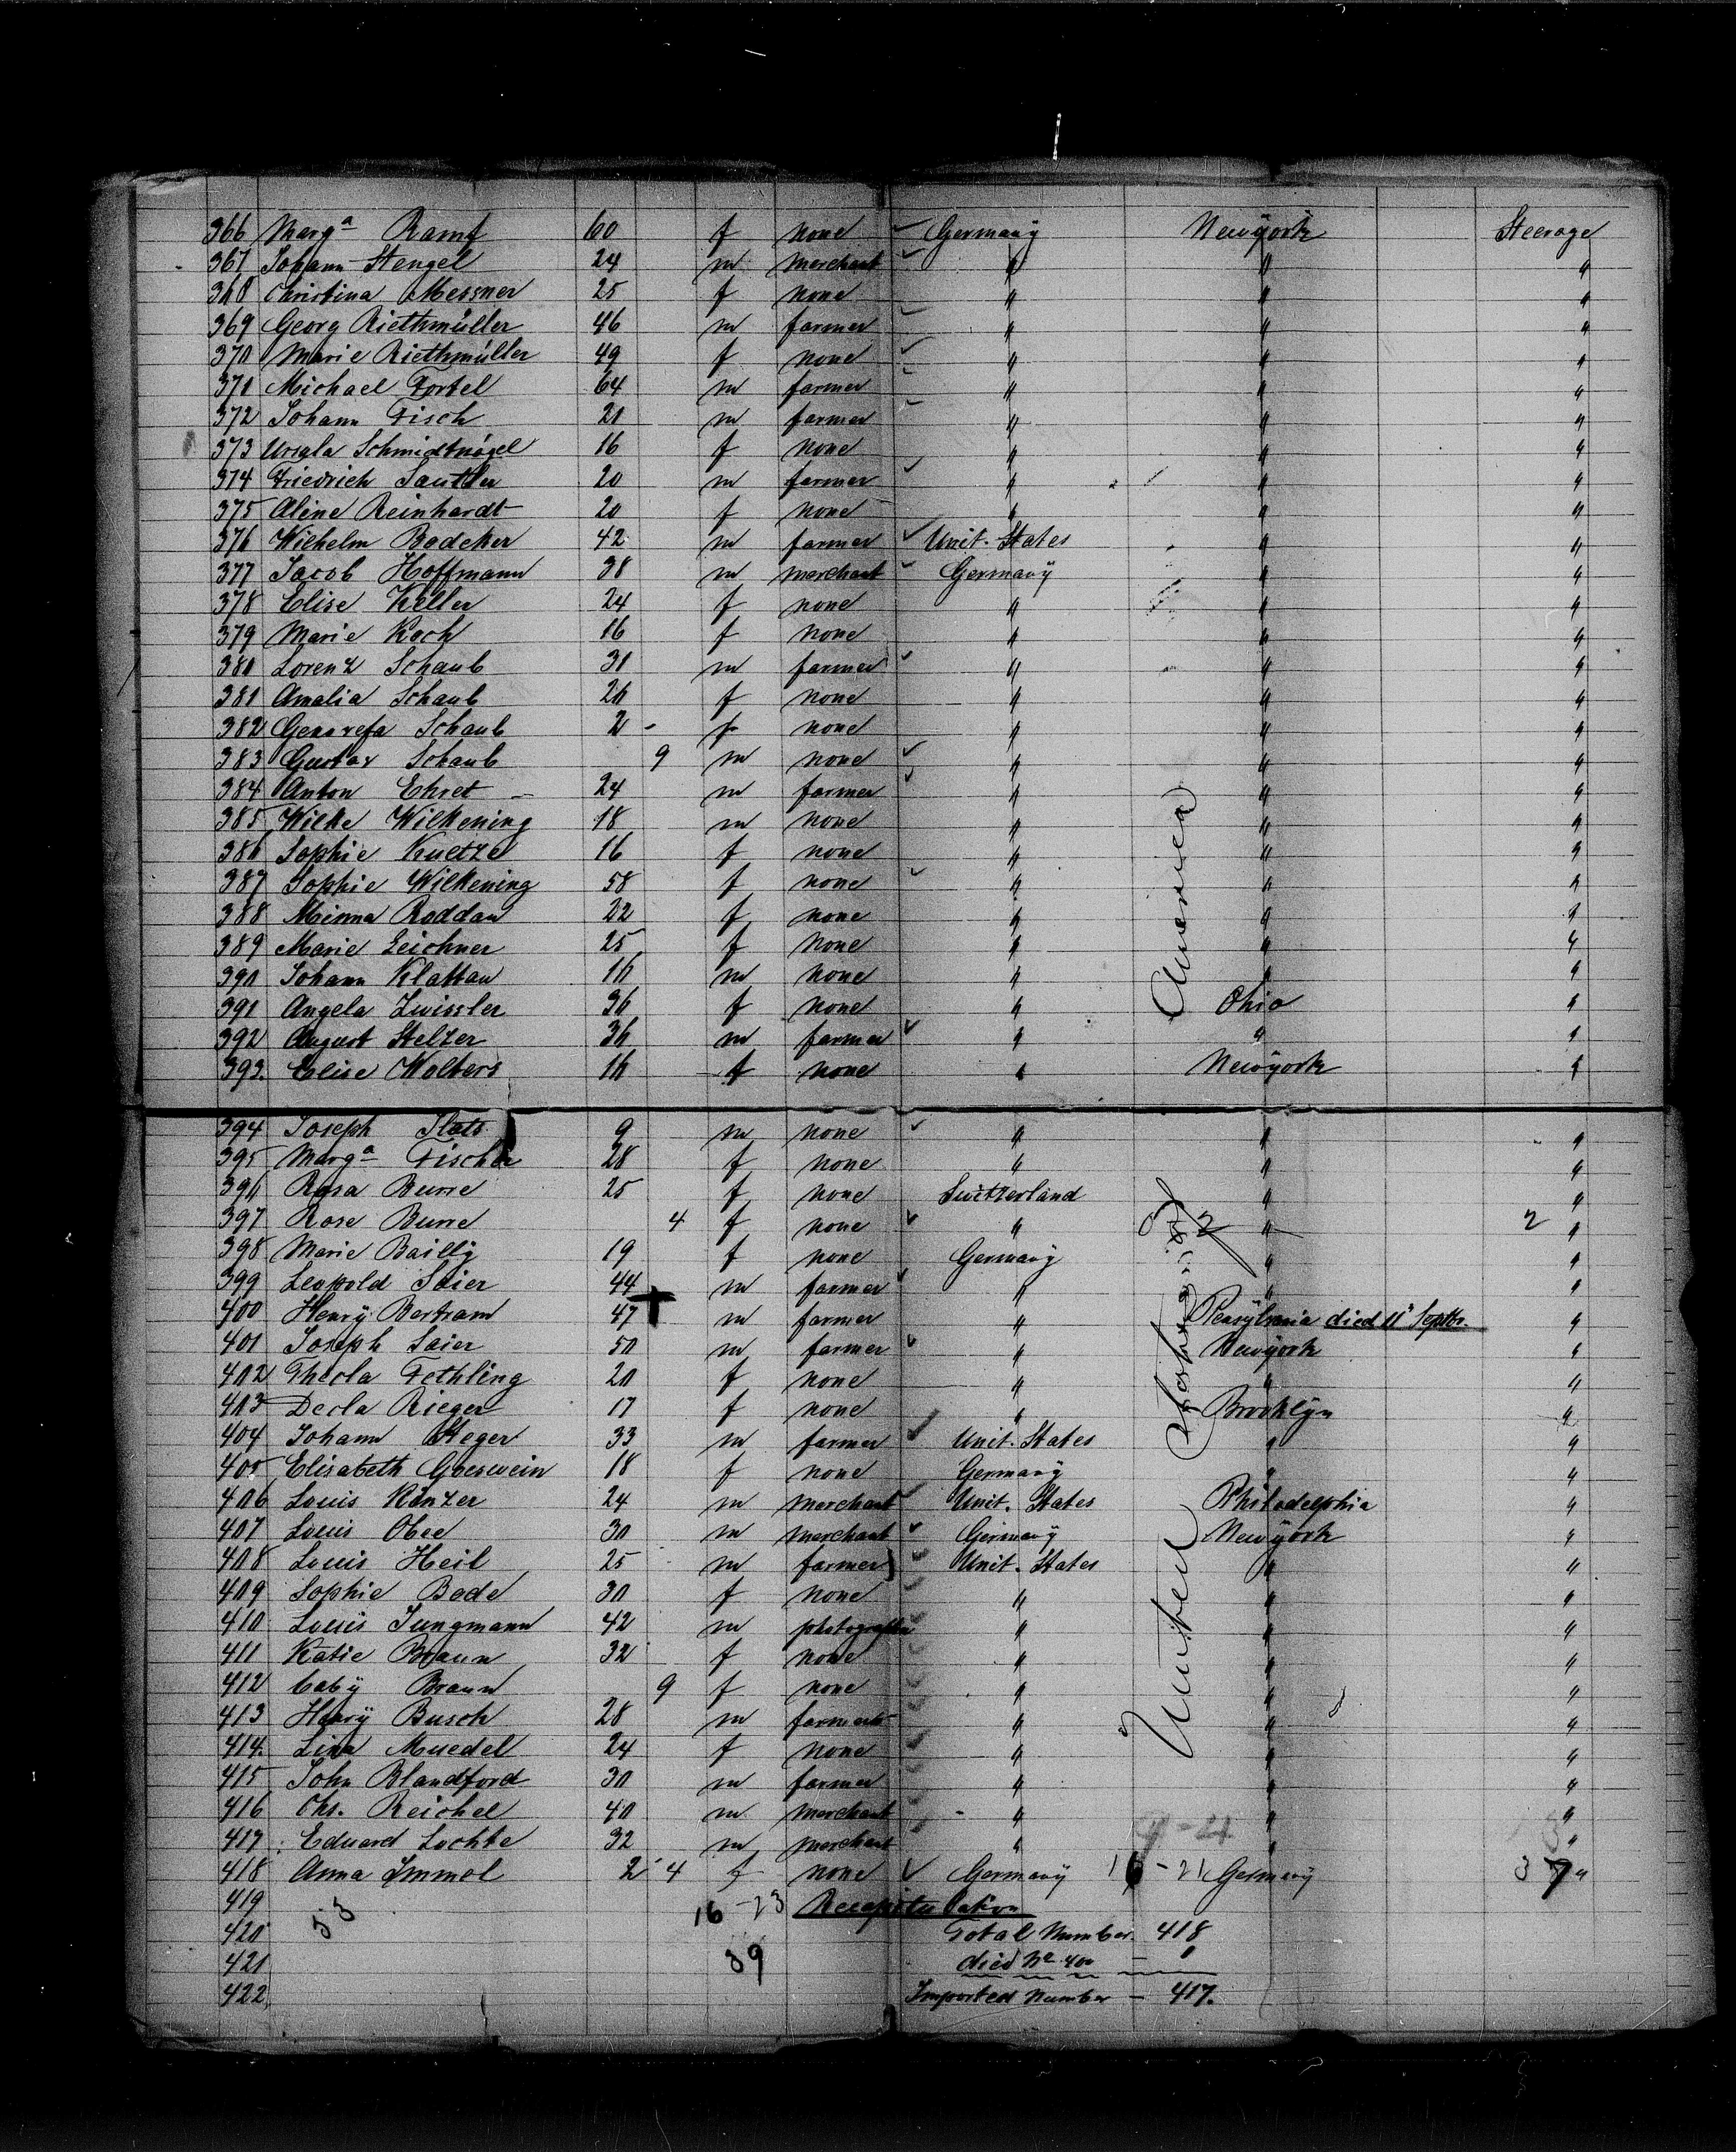 366 Marg.ª Ramf 60 f none Germany Newyork Steerage
367 Johann Stengel 24 m merchant " " "
368 Christina Messner 25 f none " " "
369 Georg Riethmüller 46 m farmer " " "
370 Marie Riethmüller 49 f none " " "
371 Michael Fortel 64 m farmer " " "
372 Johann Fisch 21 m farmer " " "
373 Ursula Schmidtnägel 16 f none " " "
374 Friedrich Sautter 20 m farmer " " "
375 Aline Reinhardt 20 f none " " "
376 Wilhelm Badeker 42 m farmer Unit. States " "
377 Jacob Hoffmann 38 m merchant Germany " "
378 Elise Keller 24 f none " " "
379 Marie Koch 16 f none " " "
380 Lorenz Schaub 31 m farmer " " "
381 Amalia Schaub 26 f none " " "
382 Genovefa Schaub 2 - f none " " "
383 Gustav Schaub 9 m none " " "
384 Anton Ehret 24 m farmer " " "
385 Wilke Wilkening 18 m none " " "
386 Sophie Kuetze 16 f none " " "
387 Sophie Wilkening 58 f none " " "
388 Minna Roddau 22 f none " " "
389 Marie Leichner 25 f none " " "
390 Johann Klattau 16 m none " " "
391 Angela Zwissler 36 f none " Ohio "
392 August Stelzer 36 m farmer " " "
393. Elise Wolters 16 f none " Newyork "
394 Joseph 9 m none " " "
395 Marg.ª Fischer 28 f none " " "
396 Rosa Burre 25 f none Switzerland " "
397 Rose Burre 4 f none " 2 " 2 "
398 Marie Bailly 19 f none Germany " "
399 Leopold Saier 44 m farmer " " "
400 Henry Bertram 47 m farmer " Pensylvania died 11' Septbr. "
401 Joseph Saier 50 m farmer " Newyork "
402 Thecla Fethling 20 f none " " "
403 Decla Rieger 17 f none " Brooklyn "
404 Johann Steger 33 m farmer Unit. States " "
405 Elisabeth Goeswein 18 f none Germany " "
406 Louis Kinzer 24 m merchant Unit. States Philadelphia "
407 Louis Obee 30 m merchant Germany Newyork "
408 Louis Heil 25 m farmer Unit. States " "
409 Sophie Bode 30 f none " " "
410 Louis Jungmann 42 m photographer " " "
411 Katie Braun 32 f none " " "
412 baby Braun 9 f none " " "
413 Henry Busch 28 m farmer " " "
414. Lina Muedel 24 f none " " "
415 John Blandford 30 m farmer " " "
416 Chs. Reichel 40 m merchant " " "
417 Eduard Lochte 32 m merchant " " "
418 Anna Immel 2 4 f none Germany 16-21 Germany 37 "
United America
419 16-23 Recapitulation
420 53 Total Number. 418
421 39 died No 400 - 1
422 Imported Number - 417.